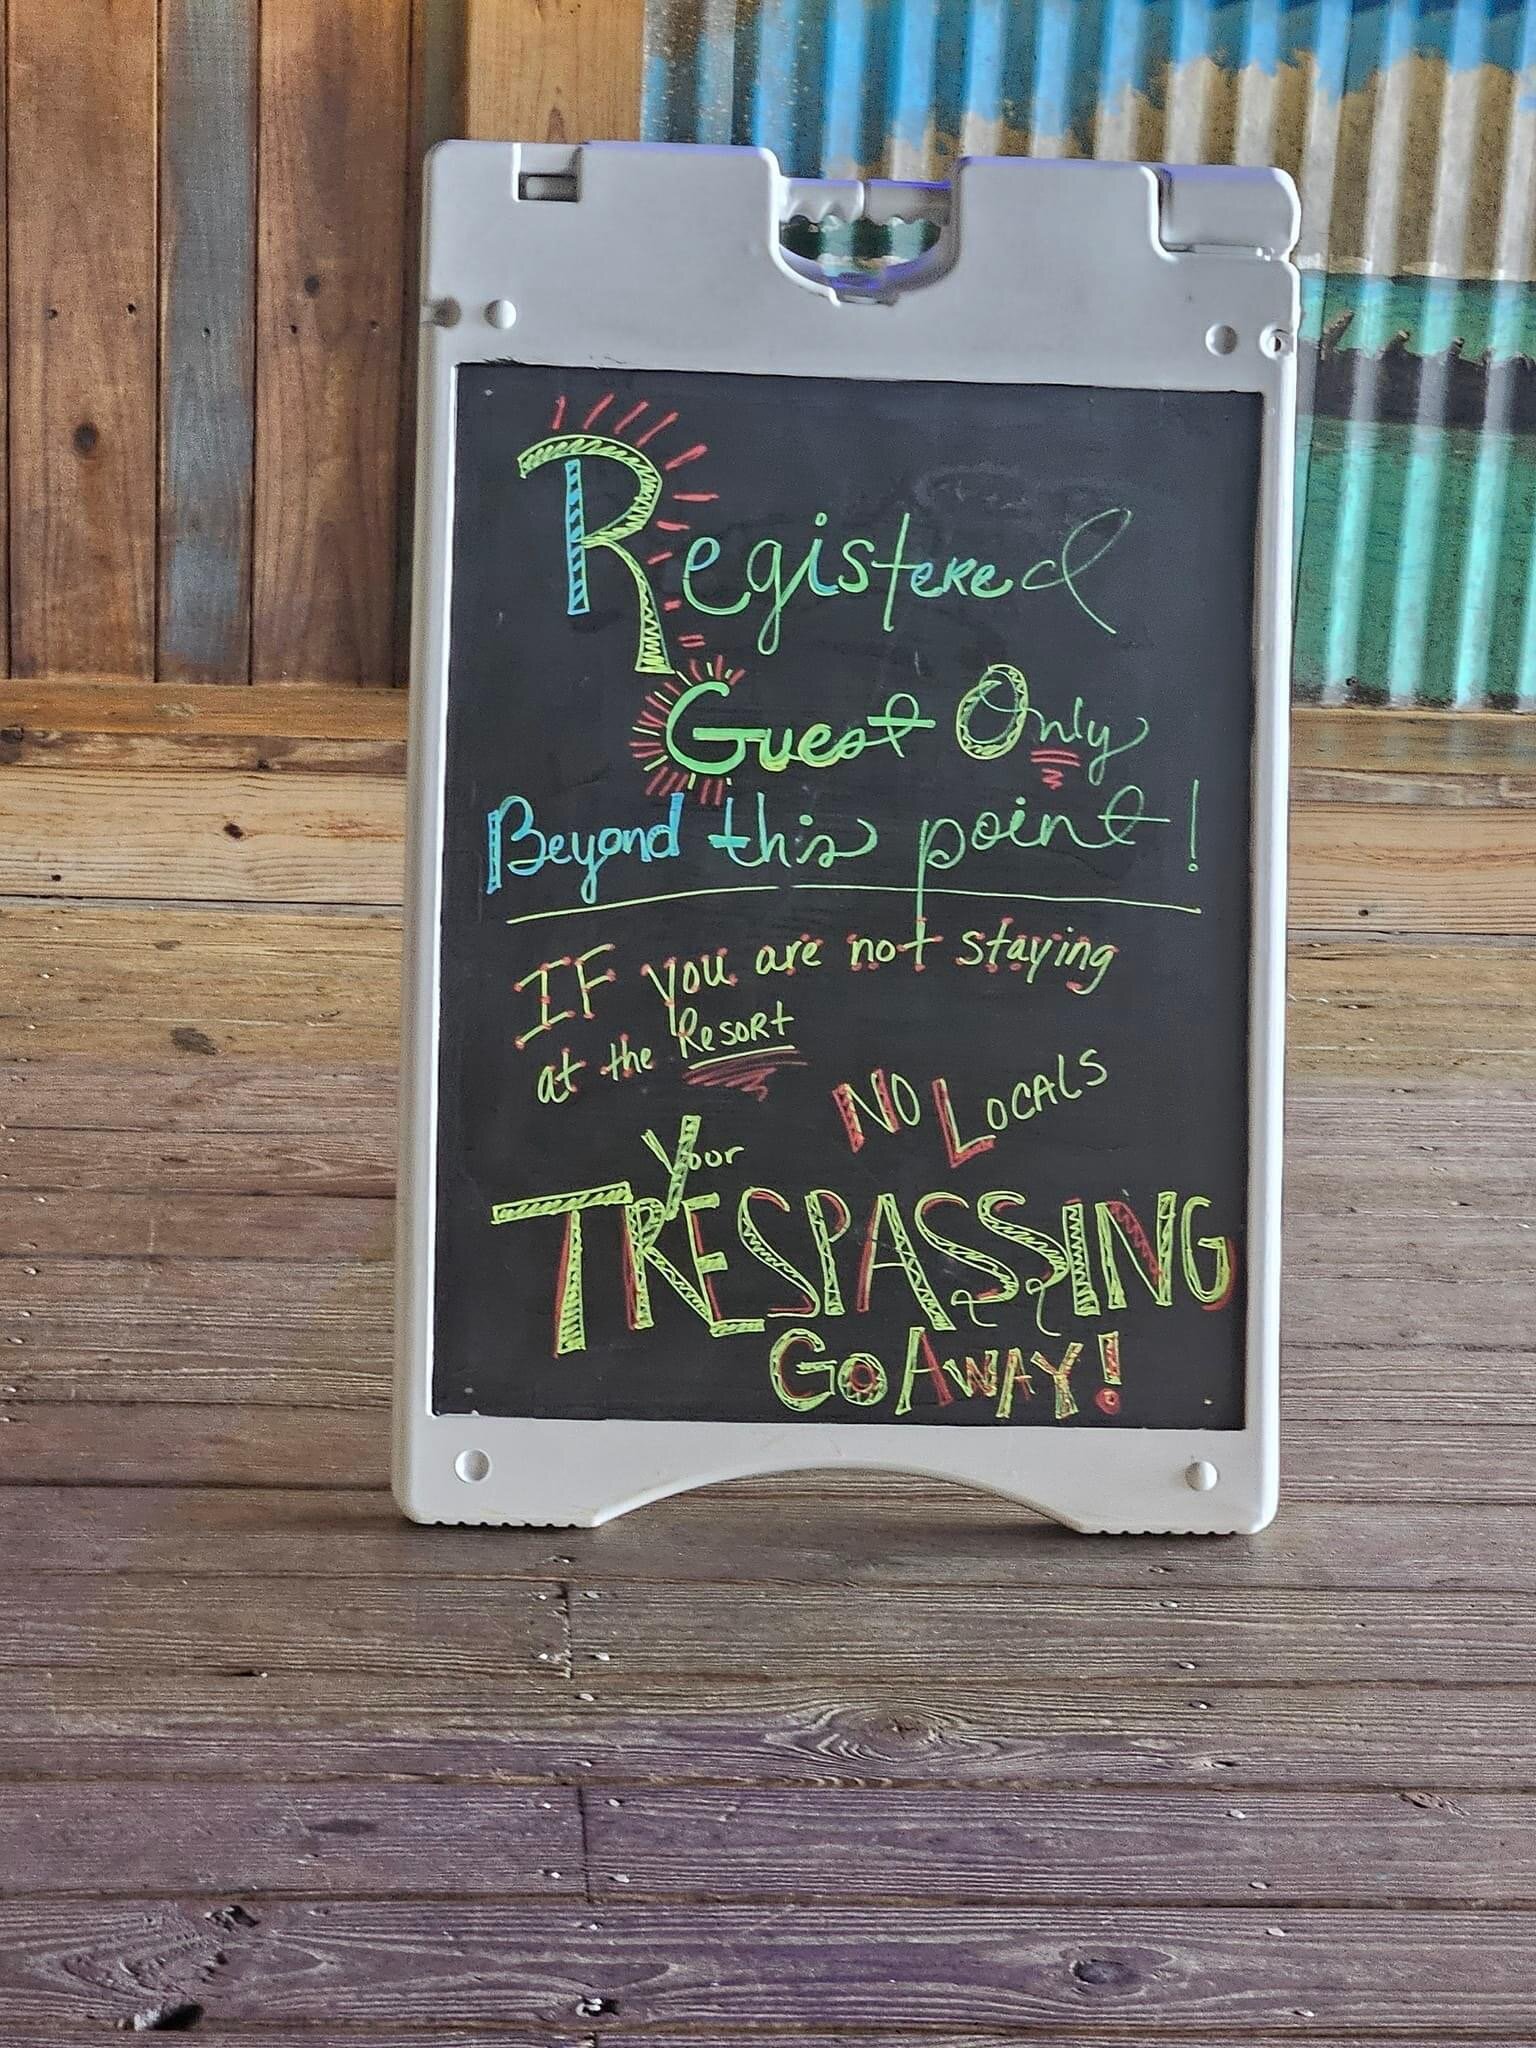 Registered
Guest Only
Beyond this point!
IF you are not staying
at the Resort
NO LOCALS
Your
TRESPASSING
GO AWAY!